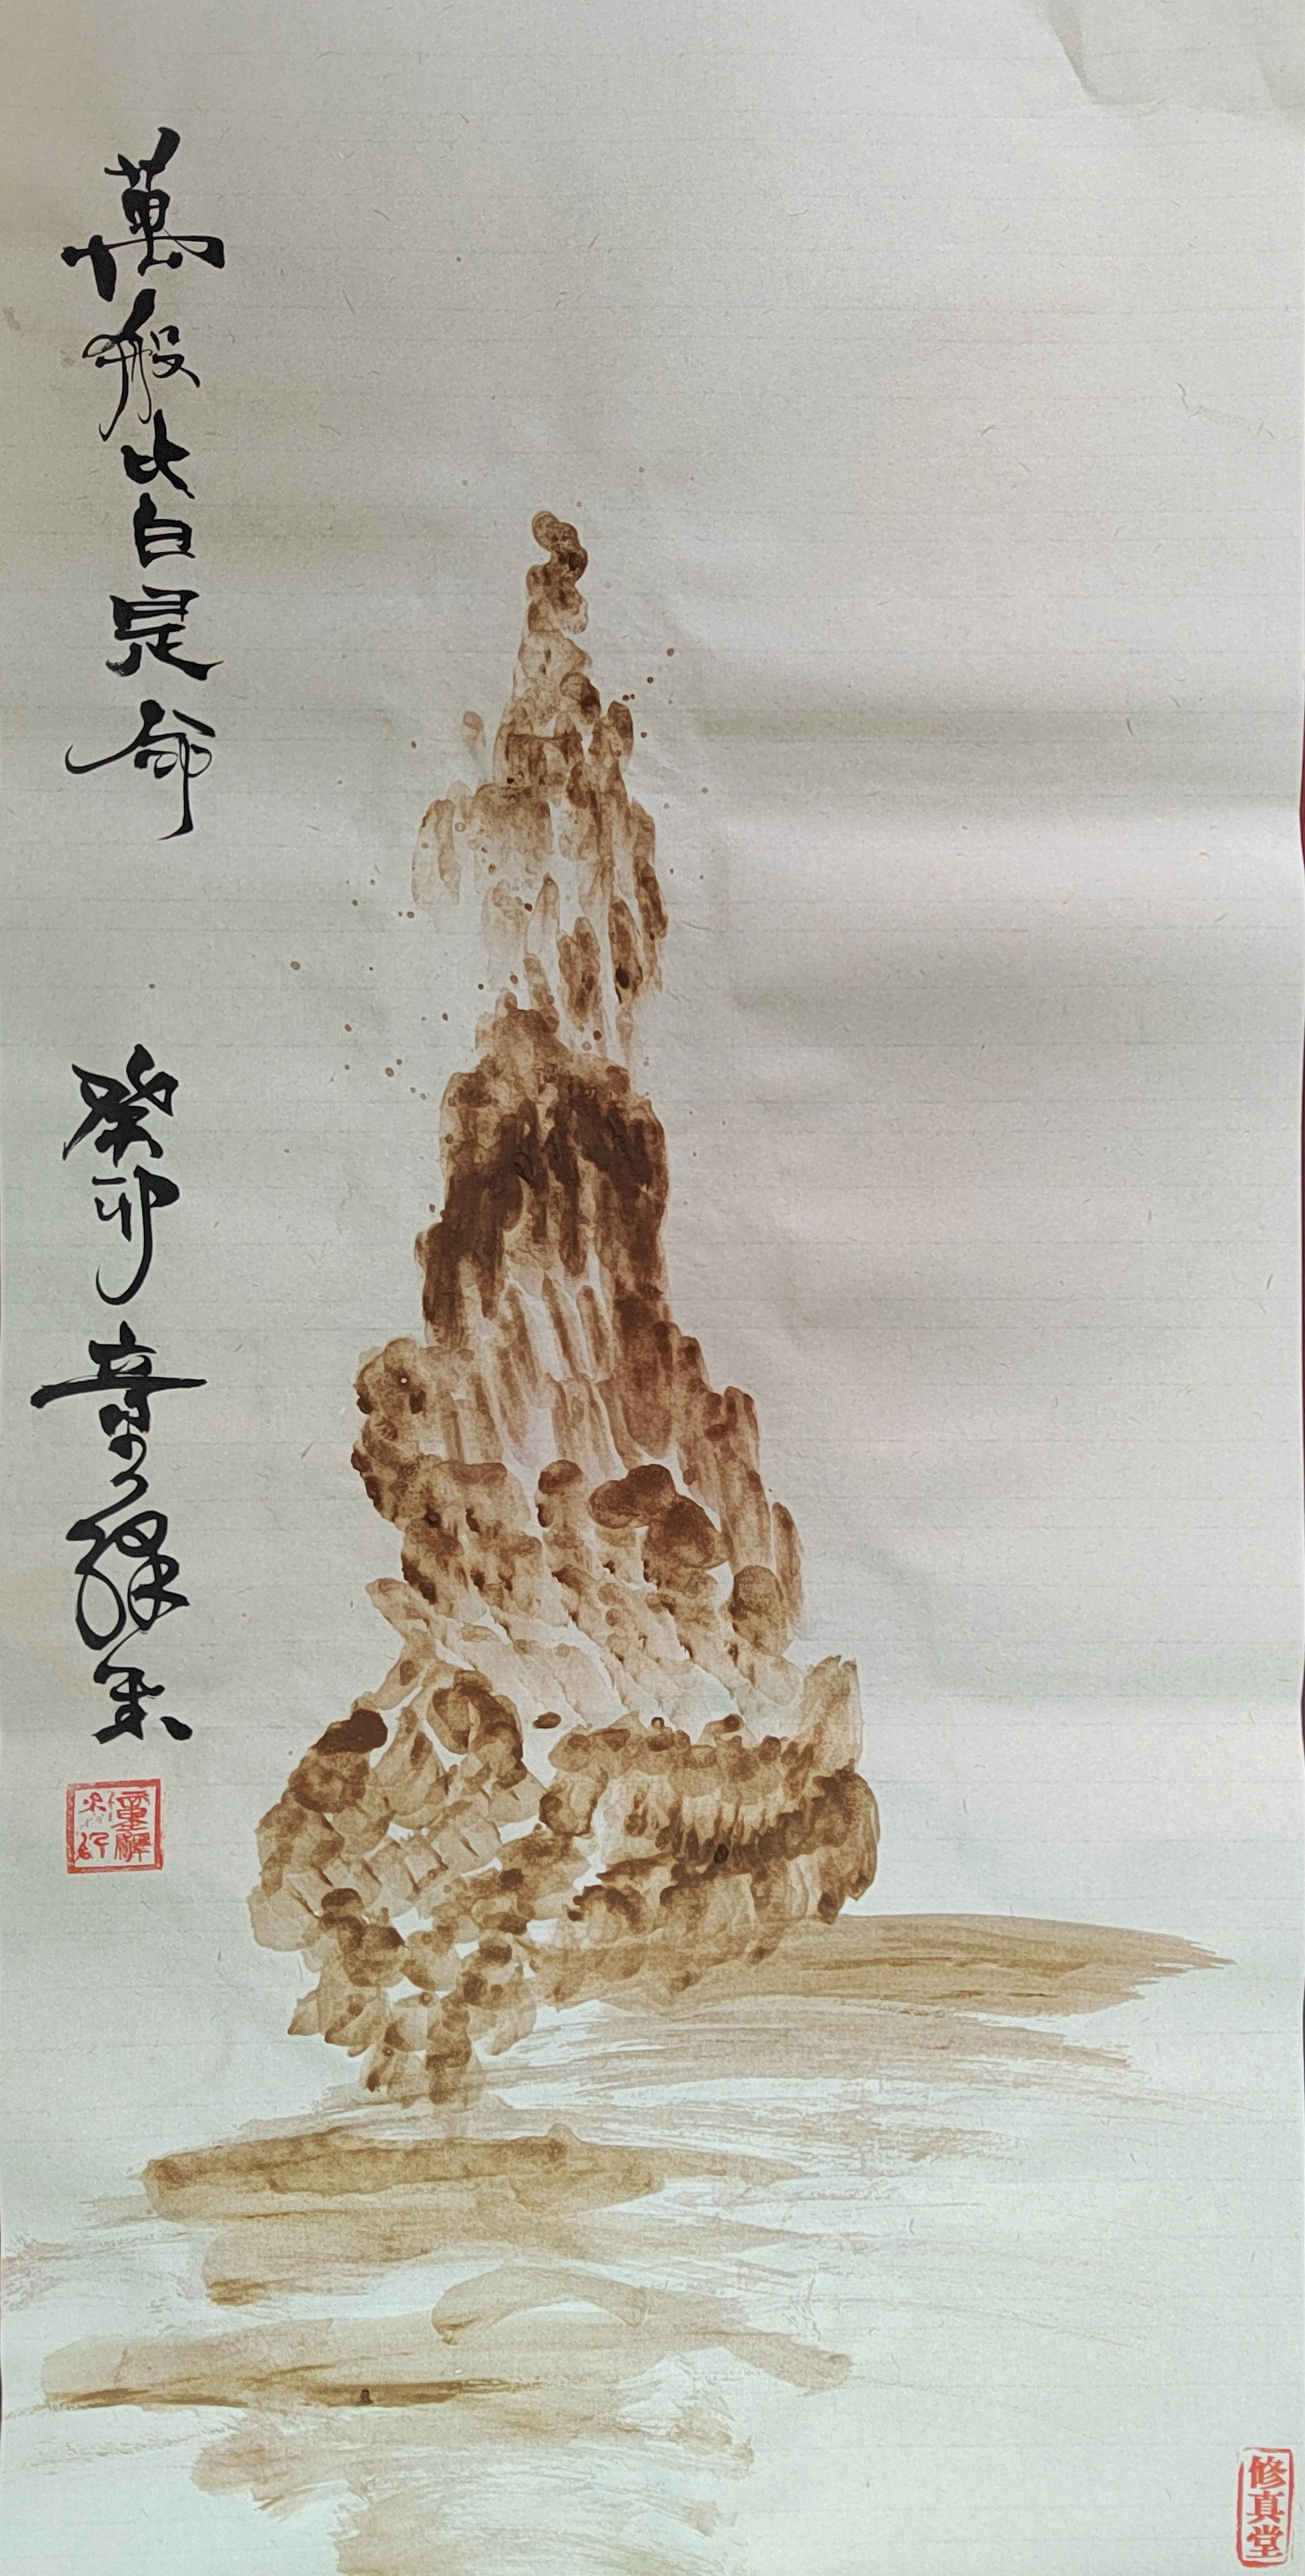 萬般皆是命
癸卯 章
修真堂